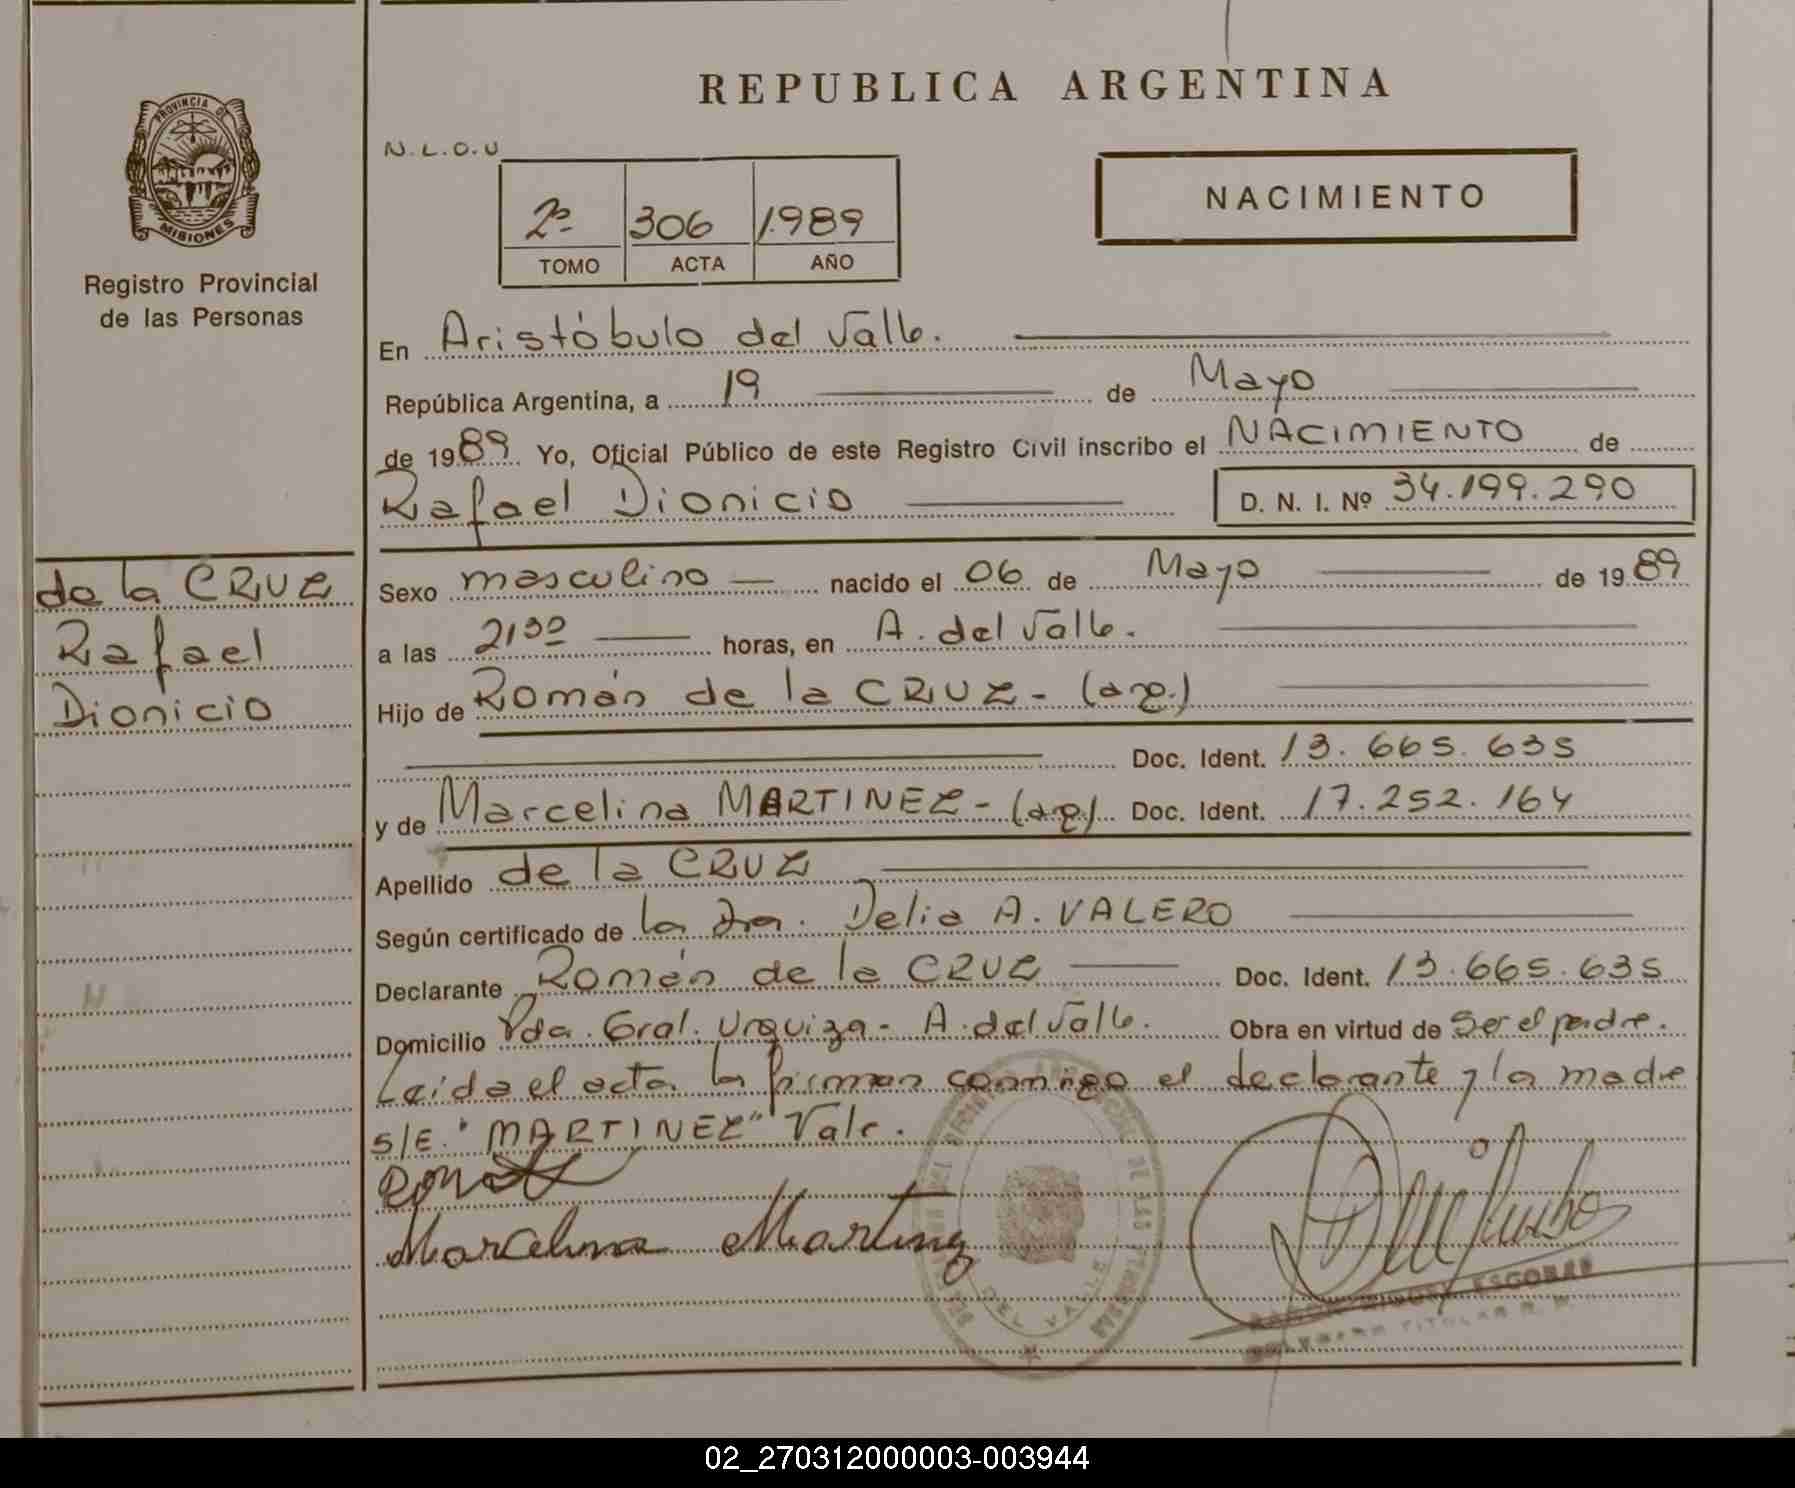 REPUBLICA ARGENTINA
PROVINCIA DE
MISIONES
Registro Provincial
de las Personas
N.L.O.U
2º 306 1.989
TOMO ACTA AÑO
NACIMIENTO
En Aristóbulo del Valle.
República Argentina, a 19 de Mayo
de 1989 Yo, Oficial Público de este Registro Civil inscribo el NACIMIENTO de
Rafael Dionicio D. N. I. Nº 34.199.290
de la CRUZ
Rafael
Dionicio
Sexo masculino nacido el 06 de Mayo de 1989
a las 21³⁰ horas, en A. del Valle.
Hijo de Román de la CRUZ - (arg.)
Doc. Ident. 13.665.635
y de Marcelina MARTINEZ - (arg) Doc. Ident. 17.252.164
Apellido de la CRUZ
Según certificado de la Dra. Delia A. VALERO
Declarante Román de la CRUZ Doc. Ident. 13.665.635
Domicilio Pda. Gral. Urquiza - A. del Valle. Obra en virtud de Ser el padre.
Leida el acta la firman conmigo el declarante y la madre
S/E. "MARTINEZ" Vale.
Marcelina Martinez
DEL VALLE
ESCOBAR
TITULAR
02_270312000003-003944